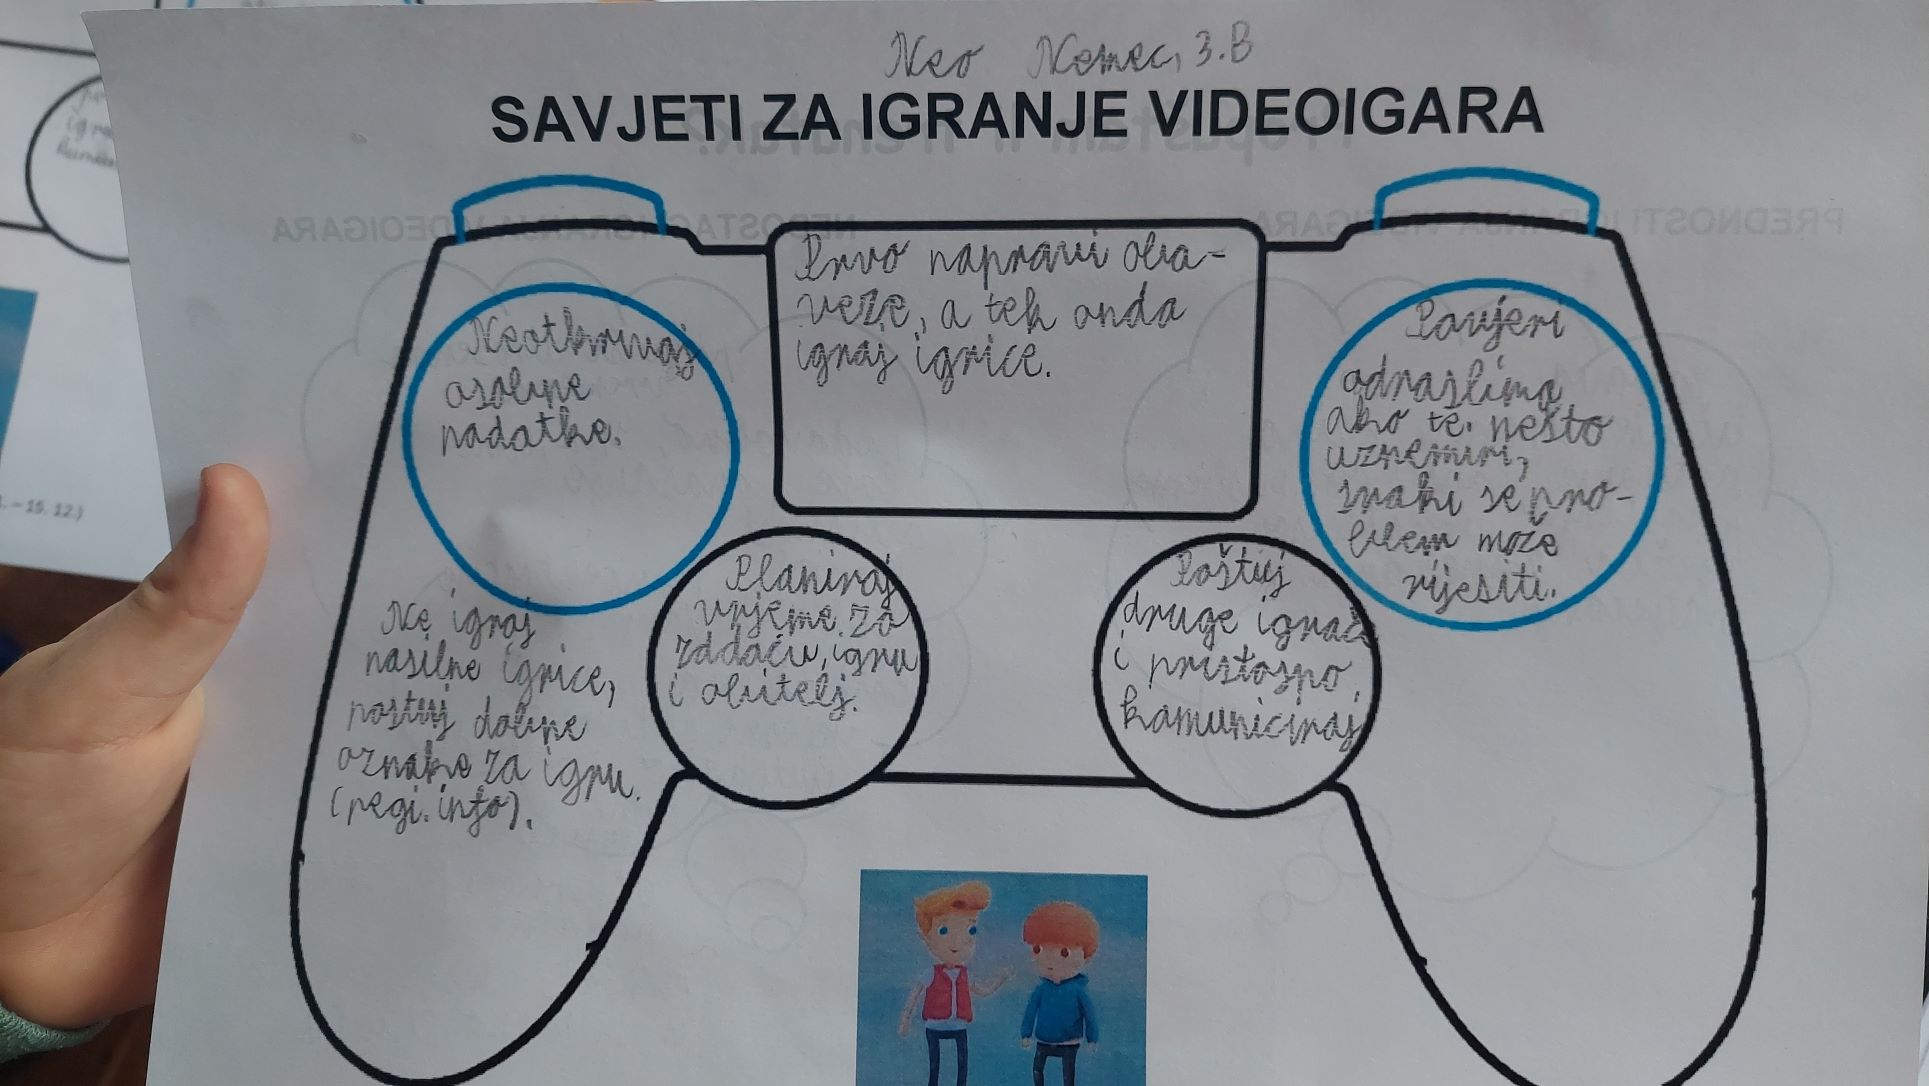 Neo Nemec, 3.B
SAVJETI ZA IGRANJE VIDEOIGARA
Neotkrivaj
osobne
podatke.
Prvo napravi oba-
veze, a tek onda
igraj igrice.
Povjeri
odraslima
ako te nešto
uznemiri,
svaki se pro-
blem može
riješiti.
Ne igraj
nasilne igrice,
poštuj dobne
oznake za igru.
(pegi.info).
Planiraj
vrijeme za
zadaću, igru
i obitelj.
Poštuj
druge igrače
i pristojno
komuniciraj
PREDNOSTI IGRANJA VIDEOIGARA
NEDOSTACI IGRANJA VIDEOIGARA
– 15. 12.)